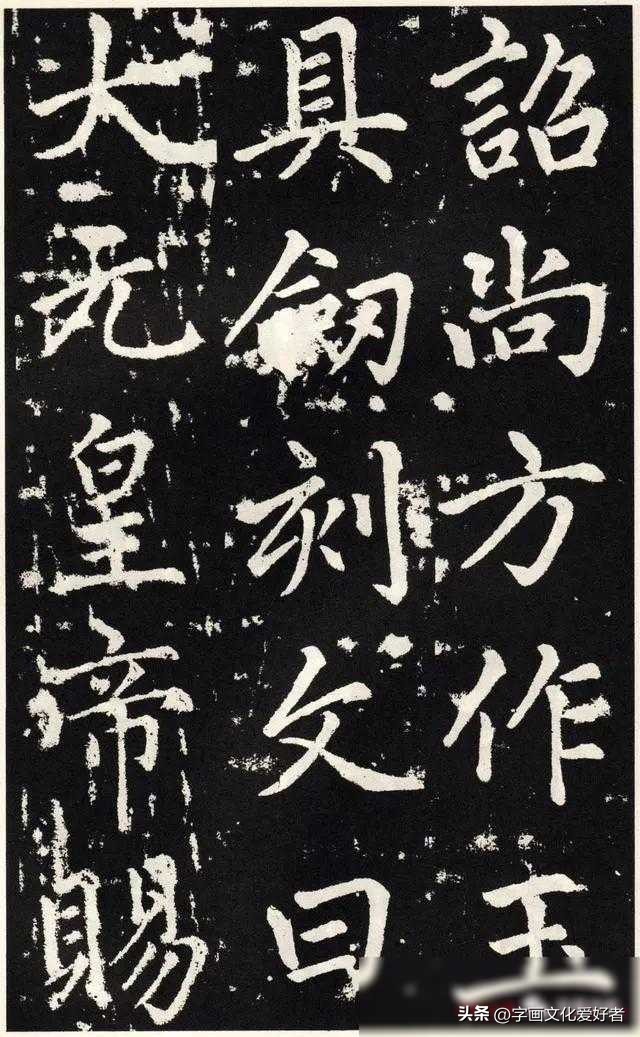 詔尚方作玉
具劒刻文曰
大元皇帝賜
头条 @字画文化爱好者